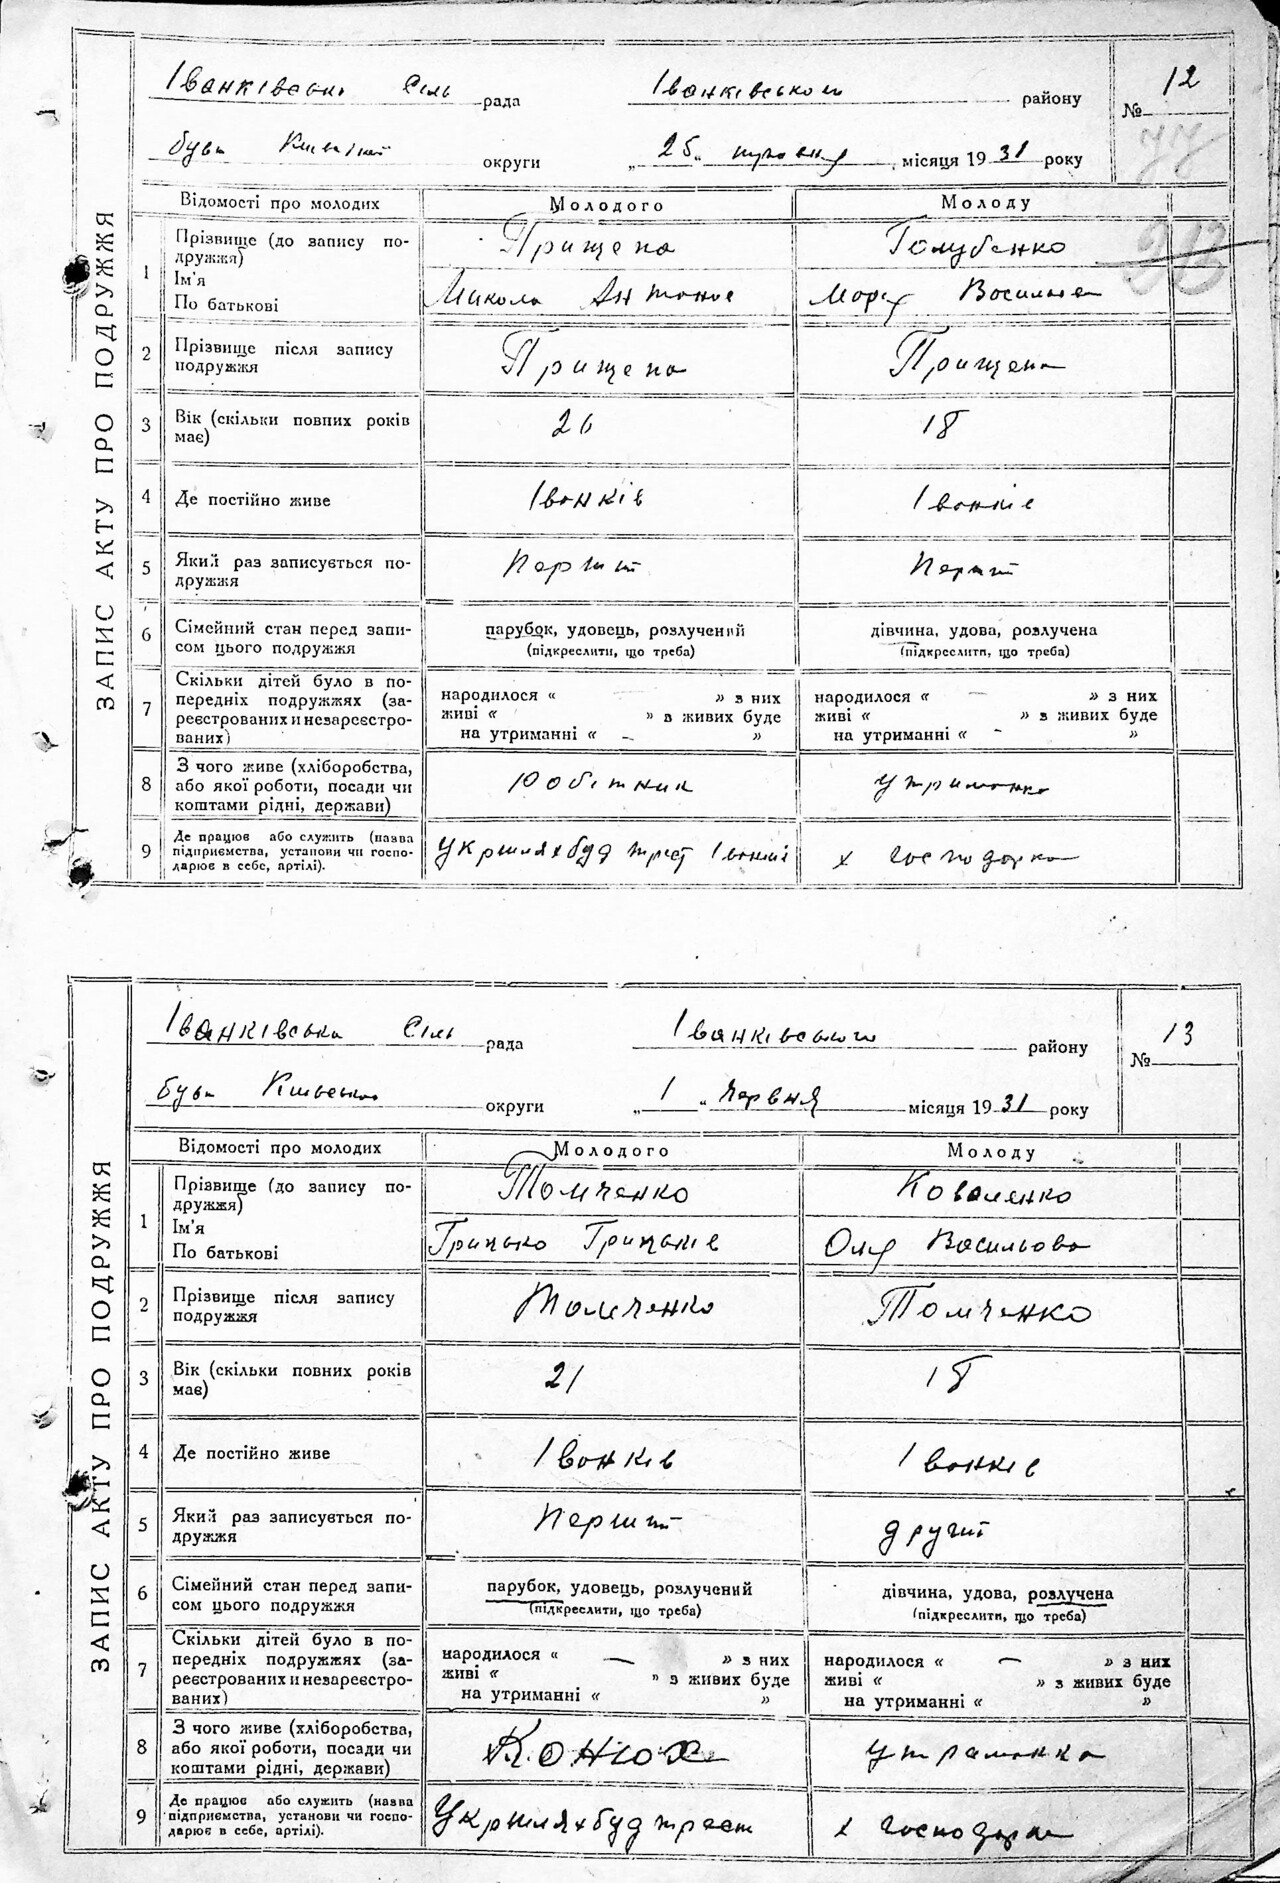 ЗАПИС АКТУ ПРО ПОДРУЖЖЯ
Іванківська Сіль рада Іванківського району № 12
77
був. округи „25„ травня місяця 1931 року
Відомості про молодих Молодого Молоду
1 Прізвище (до запису подружжя) Прищепа Голубенко
Ім'я
По батькові Микола Антонов Марія Василівн
2 Прізвище після запису подружжя Прищепа Прищепа
3 Вік (скільки повних років має) 26 18
4 Де постійно живе Іванків Іванків
5 Який раз записується подружжя Перший Перший
6 Сімейний стан перед записом цього подружжя парубок, удовець, розлучений дівчина, удова, розлучена
(підкреслити, що треба) (підкреслити, що треба)
7 Скільки дітей було в попередніх подружжях (зареєстрованих и незареєстрованих) народилося « — » з них народилося « — » з них
живі « » з живих буде живі « » з живих буде
на утриманні « - » на утриманні « - »
8 З чого живе (хліборобства, або якої роботи, посади чи коштами рідні, держави) робітник утриманка
9 Де працює або служить (назва підприємства, установи чи господарює в себе, артілі). Укршляхбуд трест Іванків х господарка
ЗАПИС АКТУ ПРО ПОДРУЖЖЯ
Іванківська Сіль рада Іванківського району № 13
був. округи „1„ червня місяця 1931 року
Відомості про молодих Молодого Молоду
1 Прізвище (до запису подружжя) Томченко Коваленко
Ім'я
По батькові Грицько Грицьків Оля Васильова
2 Прізвище після запису подружжя Томченко Томченко
3 Вік (скільки повних років має) 21 18
4 Де постійно живе Іванків Іванків
5 Який раз записується подружжя Перший другий
6 Сімейний стан перед записом цього подружжя парубок, удовець, розлучений дівчина, удова, розлучена
(підкреслити, що треба) (підкреслити, що треба)
7 Скільки дітей було в попередніх подружжях (зареєстрованих и незареєстрованих) народилося « — » з них народилося « — » з них
живі « » з живих буде живі « » з живих буде
на утриманні « » на утриманні « »
8 З чого живе (хліборобства, або якої роботи, посади чи коштами рідні, держави) Конюх утриманка
9 Де працює або служить (назва підприємства, установи чи господарює в себе, артілі). Укршляхбуд трест х господарка